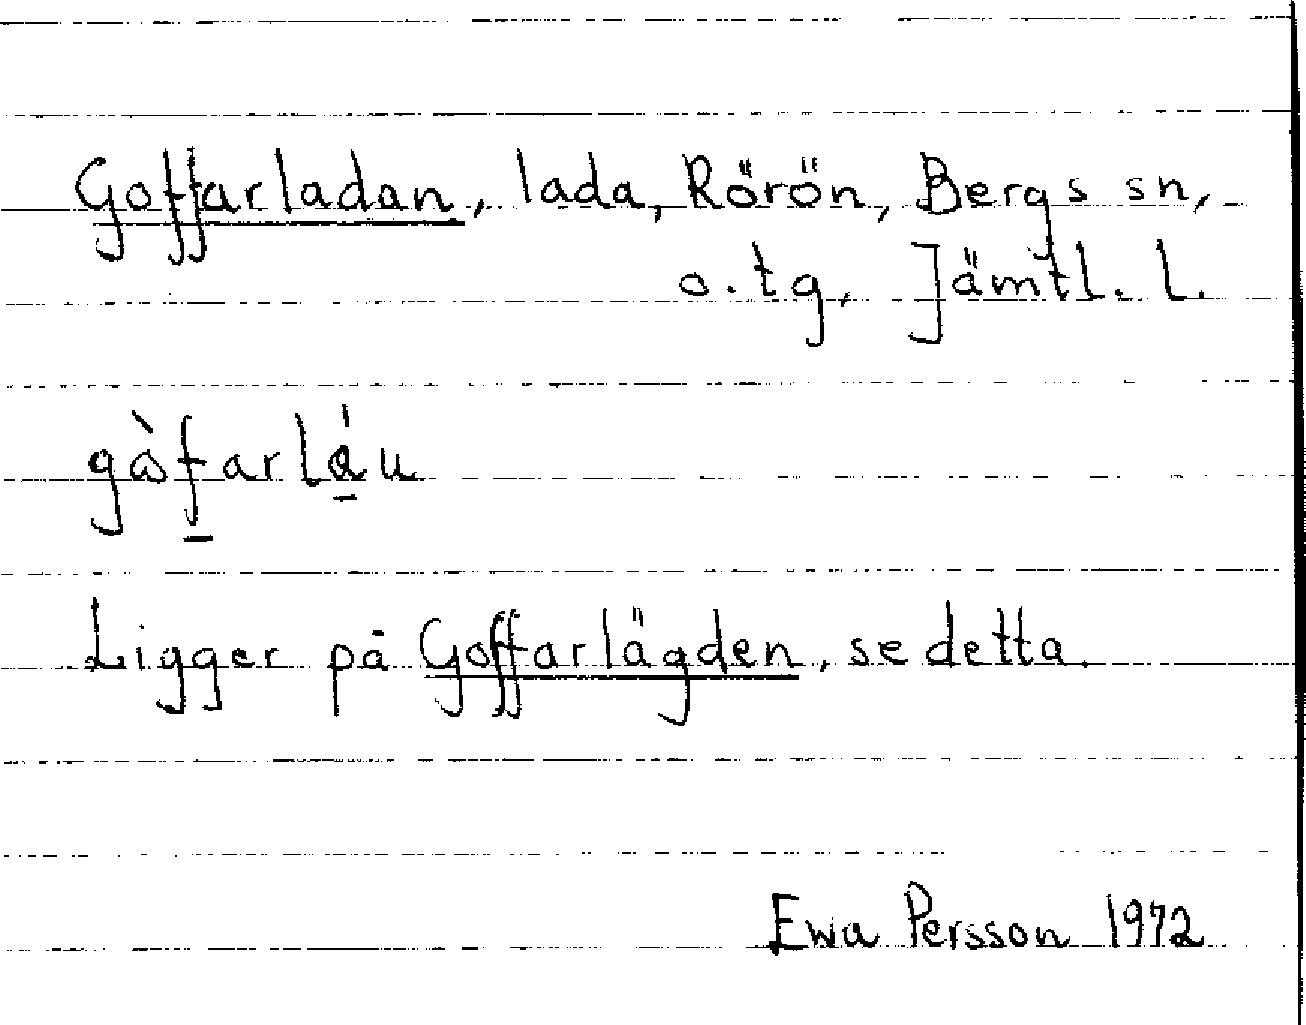 Goffarladan, lada, Rörön, Bergs sn,
o.tg, Jämtl. l.
gàf̲arlá̲u
Ligger på Goffarlägden, se detta.
Ewa Persson 1972